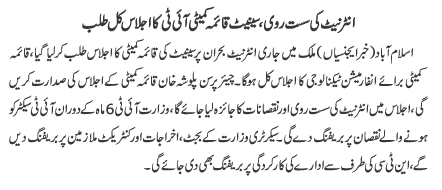 انٹرنیٹ کی سست روی، سینیٹ قائمہ کمیٹی آئی ٹی کا اجلاس کل طلب
اسلام آباد (خبر ایجنسیاں) ملک میں جاری انٹرنیٹ بحران پر سینیٹ کی قائمہ کمیٹی کا اجلاس طلب کر لیا گیا، قائمہ
کمیٹی برائے انفارمیشن ٹیکنالوجی کا اجلاس کل ہوگا۔ چیئر پرسن پلوشہ خان قائمہ کمیٹی کے اجلاس کی صدارت کریں
گی، اجلاس میں انٹرنیٹ کی سست روی اور نقصانات کا جائزہ لیا جائے گا، وزارت آئی ٹی 6 ماہ کے دوران آئی ٹی سیکٹر کو
ہونے والے نقصان پر بریفنگ دے گی۔ سیکرٹری وزارت کے بجٹ، اخراجات اور کنٹریکٹ ملازمین پر بریفنگ دیں
گے، این ٹی سی کی طرف سے ادارے کی کارکردگی پر بریفنگ بھی دی جائے گی۔